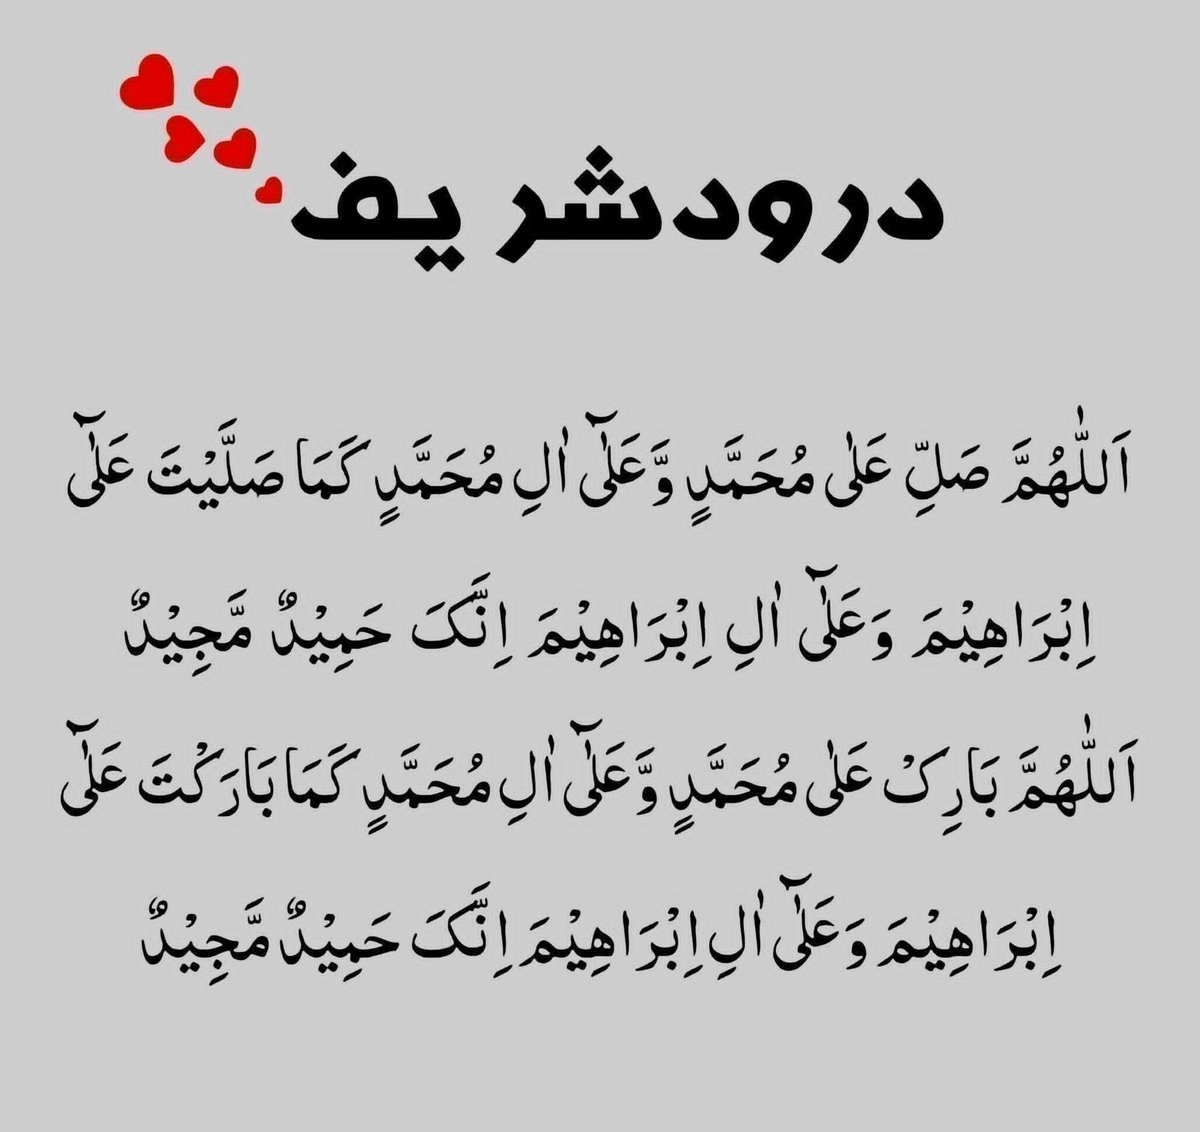 درود شریف
اَللّٰهُمَّ صَلِّ عَلٰی مُحَمَّدٍ وَّعَلٰٓی اٰلِ مُحَمَّدٍ کَمَا صَلَّیْتَ عَلٰٓی
اِبْرَاهِیْمَ وَعَلٰٓی اٰلِ اِبْرَاهِیْمَ اِنَّکَ حَمِیْدٌ مَّجِیْدٌ
اَللّٰهُمَّ بَارِکْ عَلٰی مُحَمَّدٍ وَّعَلٰٓی اٰلِ مُحَمَّدٍ کَمَا بَارَکْتَ عَلٰٓی
اِبْرَاهِیْمَ وَعَلٰٓی اٰلِ اِبْرَاهِیْمَ اِنَّکَ حَمِیْدٌ مَّجِیْدٌ